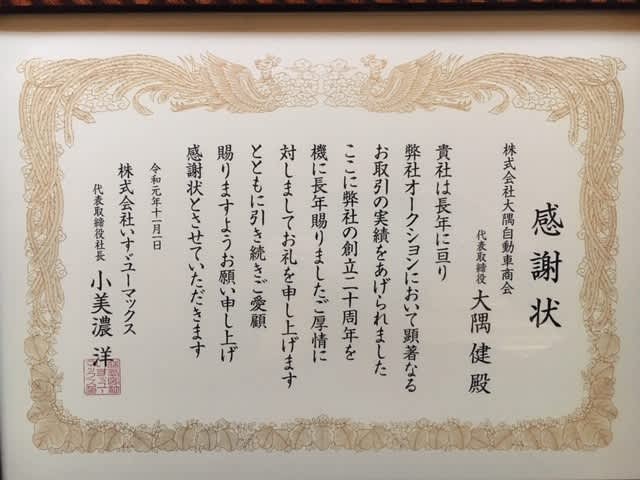 感謝状
株式会社大隅自動車商会
代表取締役 大隅 健 殿
貴社は長年に亘り
弊社オークションにおいて顕著なる
お取引の実績をあげられました
ここに弊社の創立二十周年を
機に長年賜りましたご厚情に
対しましてお礼を申し上げます
とともに引き続きご愛顧
賜りますようお願い申し上げ
感謝状とさせていただきます
令和元年十一月一日
株式会社いすゞユーマックス
代表取締役社長 小美濃 洋